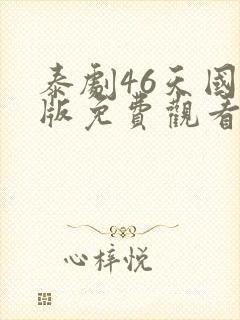 泰劇46天國
版免費觀看
心梓悦